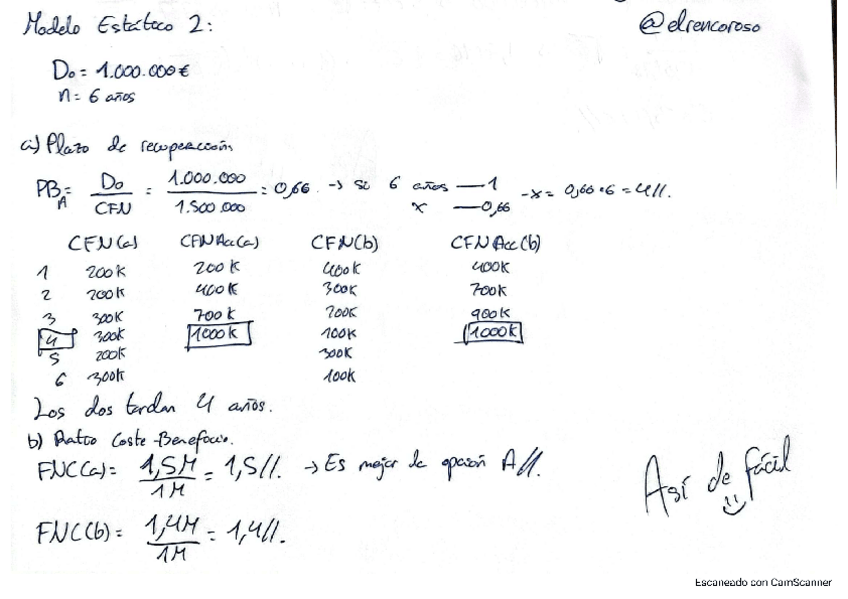 Modelo Estático 2:
@elrencoroso
Do = 1.000.000€
n = 6 años
a) Plazo de recuperación
PB_A = Do / CFN = 1.000.000 / 1.500.000 = 0,66. → si 6 años — 1 - x = 0,66 · 6 = 4//.
x — 0,66
CFN(a) CFNAcc(a) CFN(b) CFNAcc(b)
1 200k 200k 400k 400k
2 200k 400k 300k 700k
3 300k 700k 200k 900k
4 300k 1000k 100k 1000k
5 200k 300k
6 300k 100k
Los dos tardan 4 años.
b) Ratio Coste-Beneficio.
FNC(a) = 1,5M / 1M = 1,5//. → Es mejor la opción A//.
Así de fácil
FNC(b) = 1,4M / 1M = 1,4//.
Escaneado con CamScanner